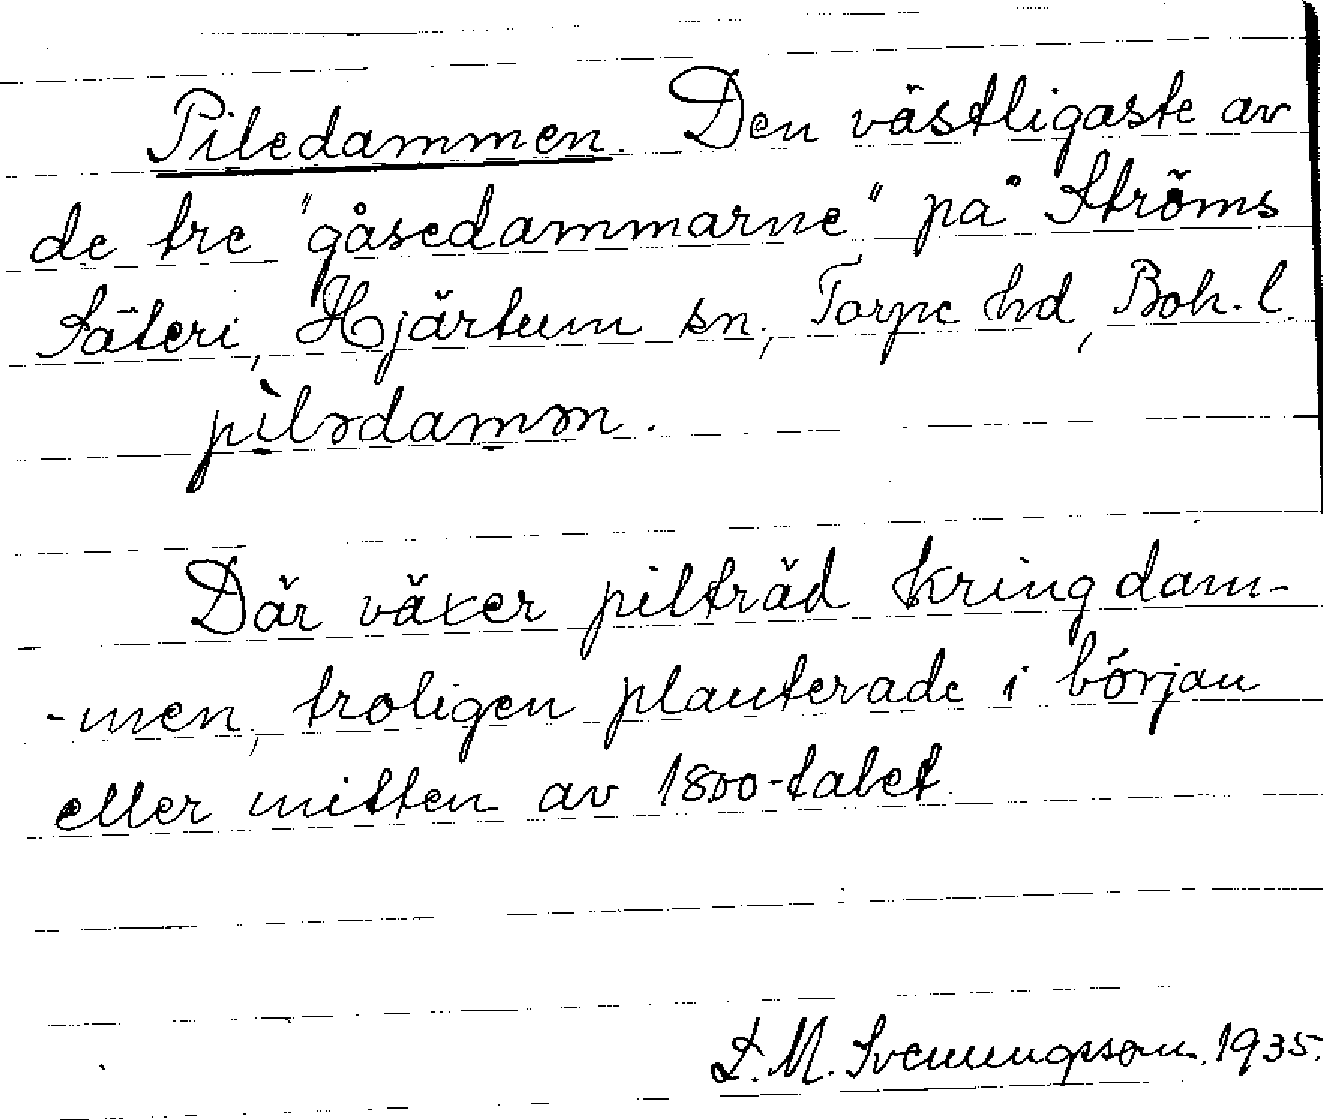 Piledammen. Den västligaste av
de tre "gåsedammarne" på Ströms
Säteri, Hjärtum sn, Torpe hd, Boh. l.
pìlədamən.
Där växer pilträd kring dam-
-men, troligen planterade i början
eller mitten av 1800-talet.
D. M. Svenungsson. 1935.